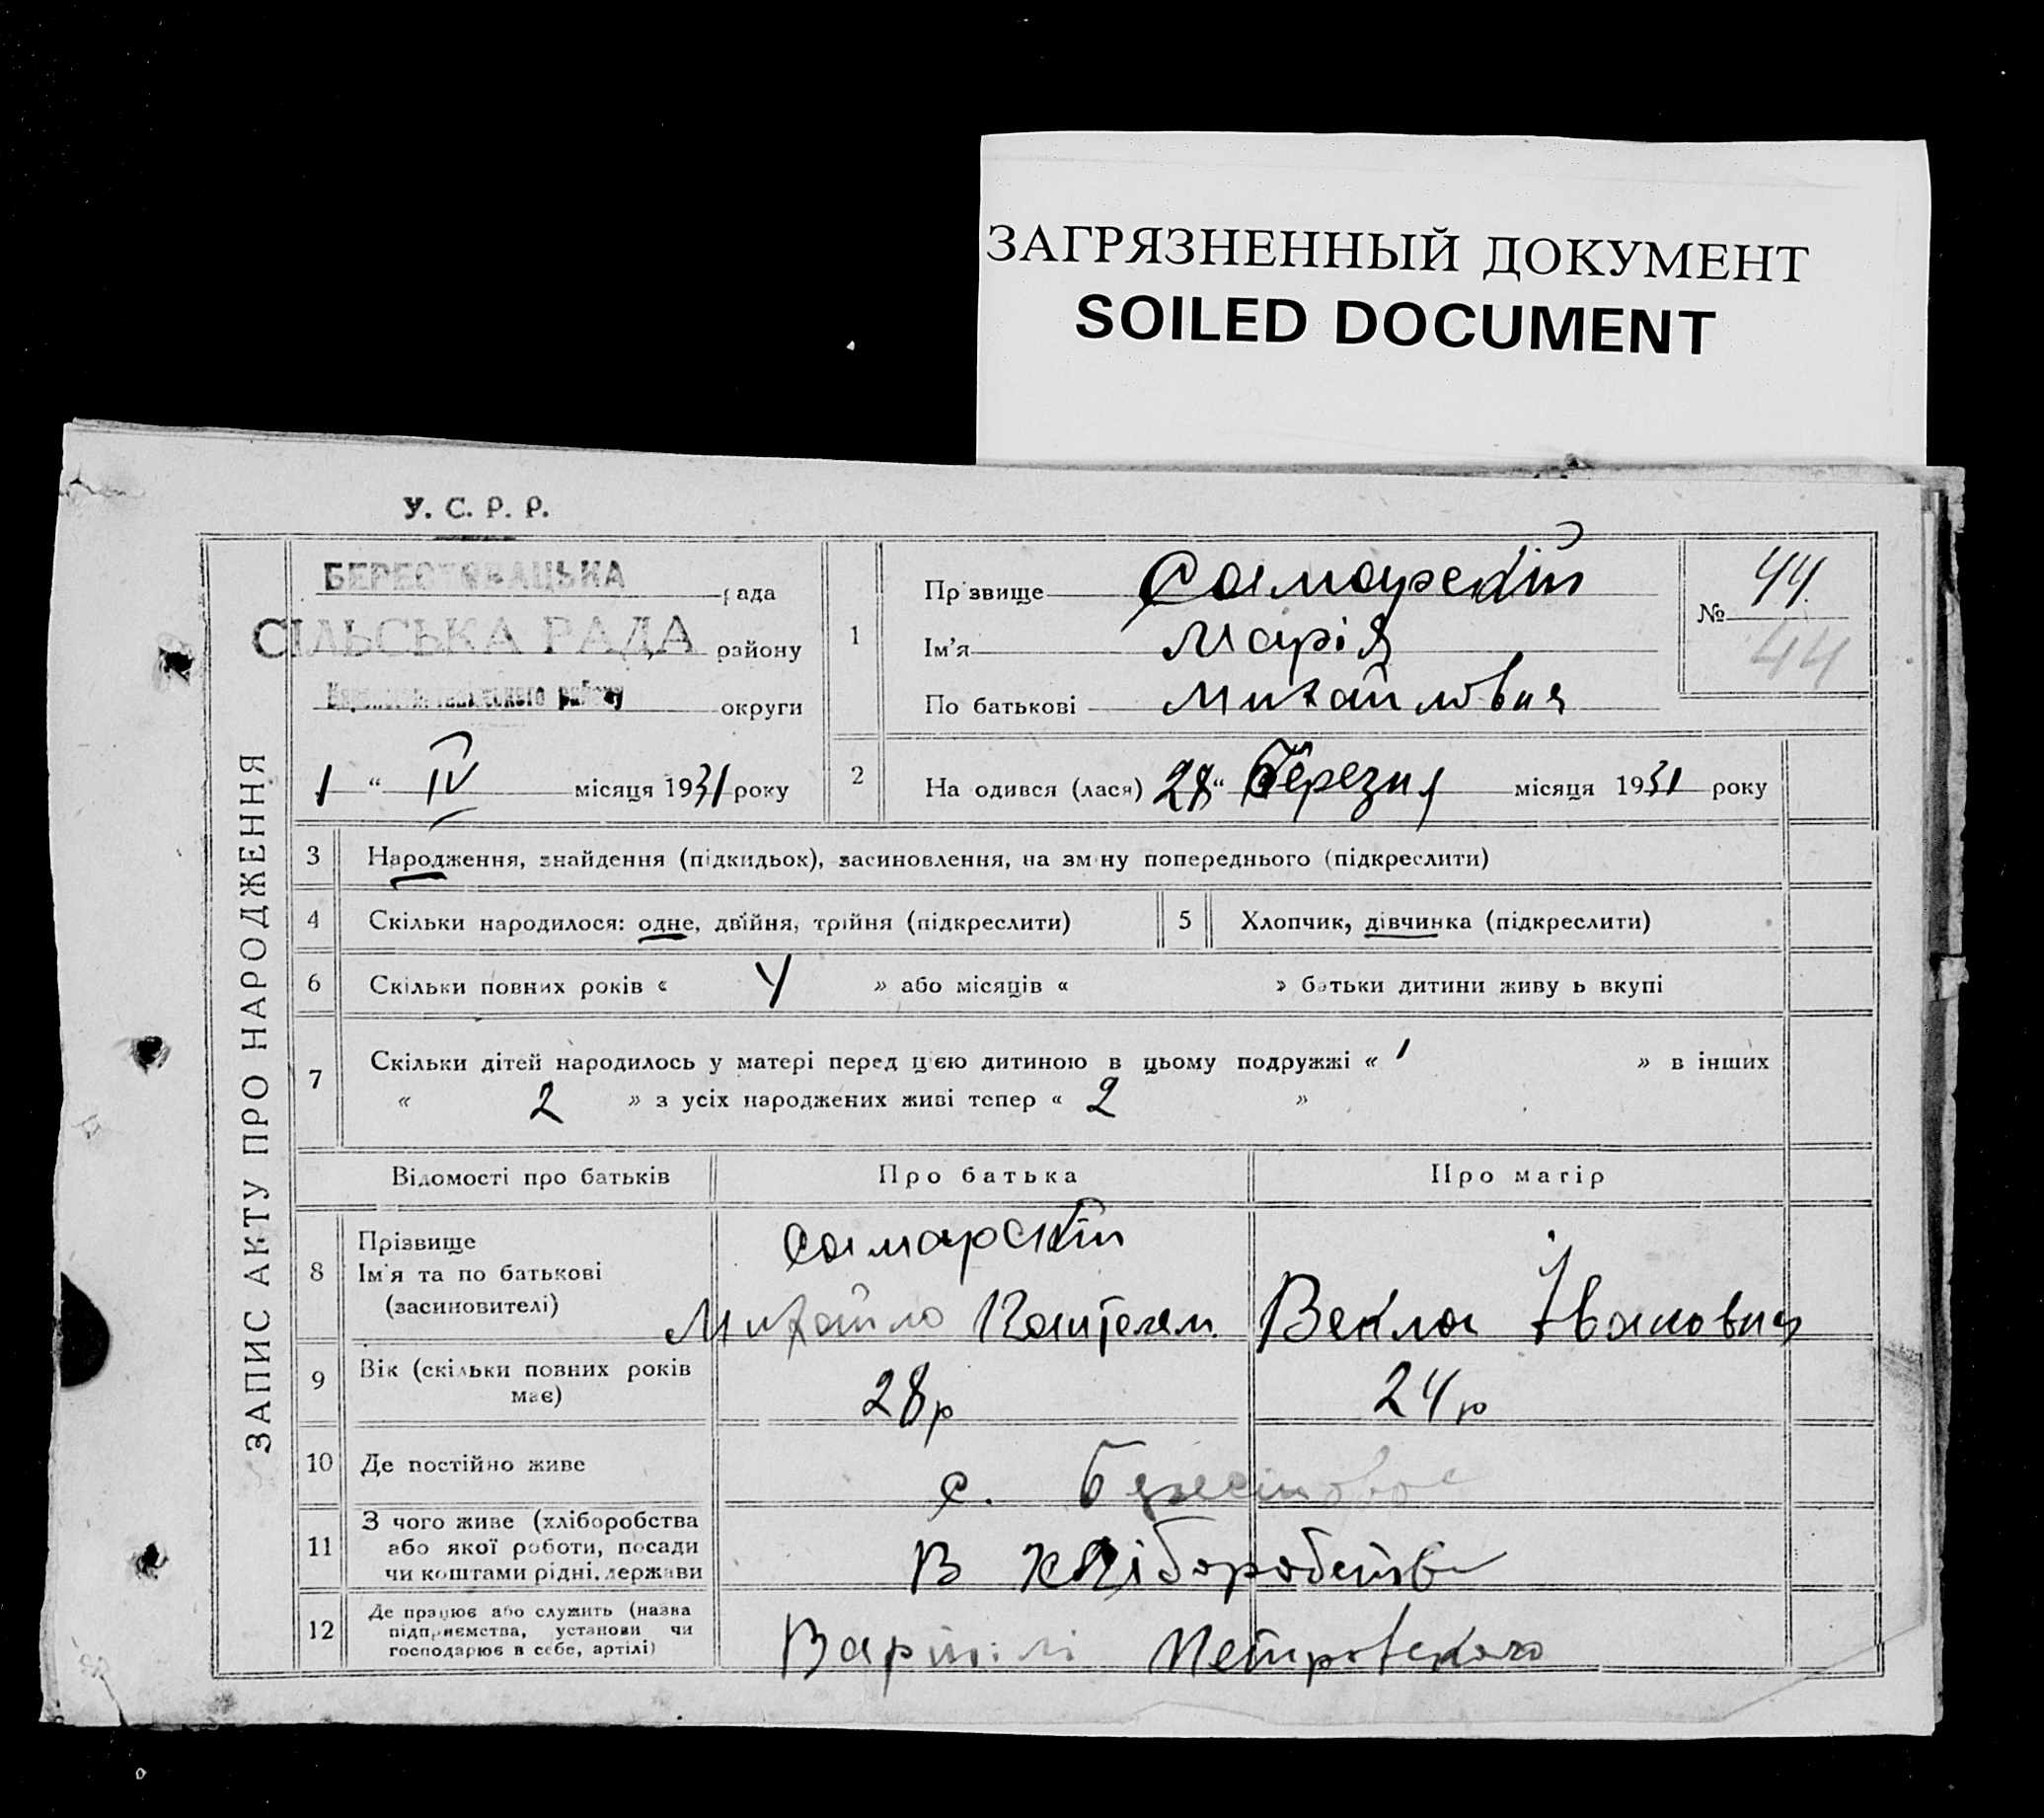 ЗАГРЯЗНЕННЫЙ ДОКУМЕНТ
SOILED DOCUMENT
У. С. Р. Р.
ЗАПИС АКТУ ПРО НАРОДЖЕННЯ
БЕРЕСТОВАЦЬКА рада
СІЛЬСЬКА РАДА району
району округи
1 “ IV місяця 1931 року
1 Прізвище Самарский
Ім'я Марія
По батькові Михайловня
№ 44
44
2 Народився (лася) 28 “ Березня місяця 1931 року
3 Народження, знайдення (підкидьок), засиновлення, на зміну попереднього (підкреслити)
4 Скільки народилося: одне, двійня, трійня (підкреслити) 5 Хлопчик, дівчинка (підкреслити)
6 Скільки повних років « 4 » або місяців « » батьки дитини живуть вкупі
7 Скільки дітей народилось у матері перед цією дитиною в цьому подружжі « 1 » в інших
« 2 » з усіх народжених живі тепер « 2 »
Відомості про батьків Про батька Про матір
8 Прізвище
Ім'я та по батькові
(засиновителі)
Самарский
Михайло Векла Івановня
9 Вік (скільки повних років
має)
28р 24р
10 Де постійно живе с. Берестовое
11 З чого живе (хліборобства
або якої роботи, посади
чи коштами рідні, держави
В хліборобстві
12 Де працює або служить (назва
підприємства, установи чи
господарює в себе, артілі)
Вартілі Петровского